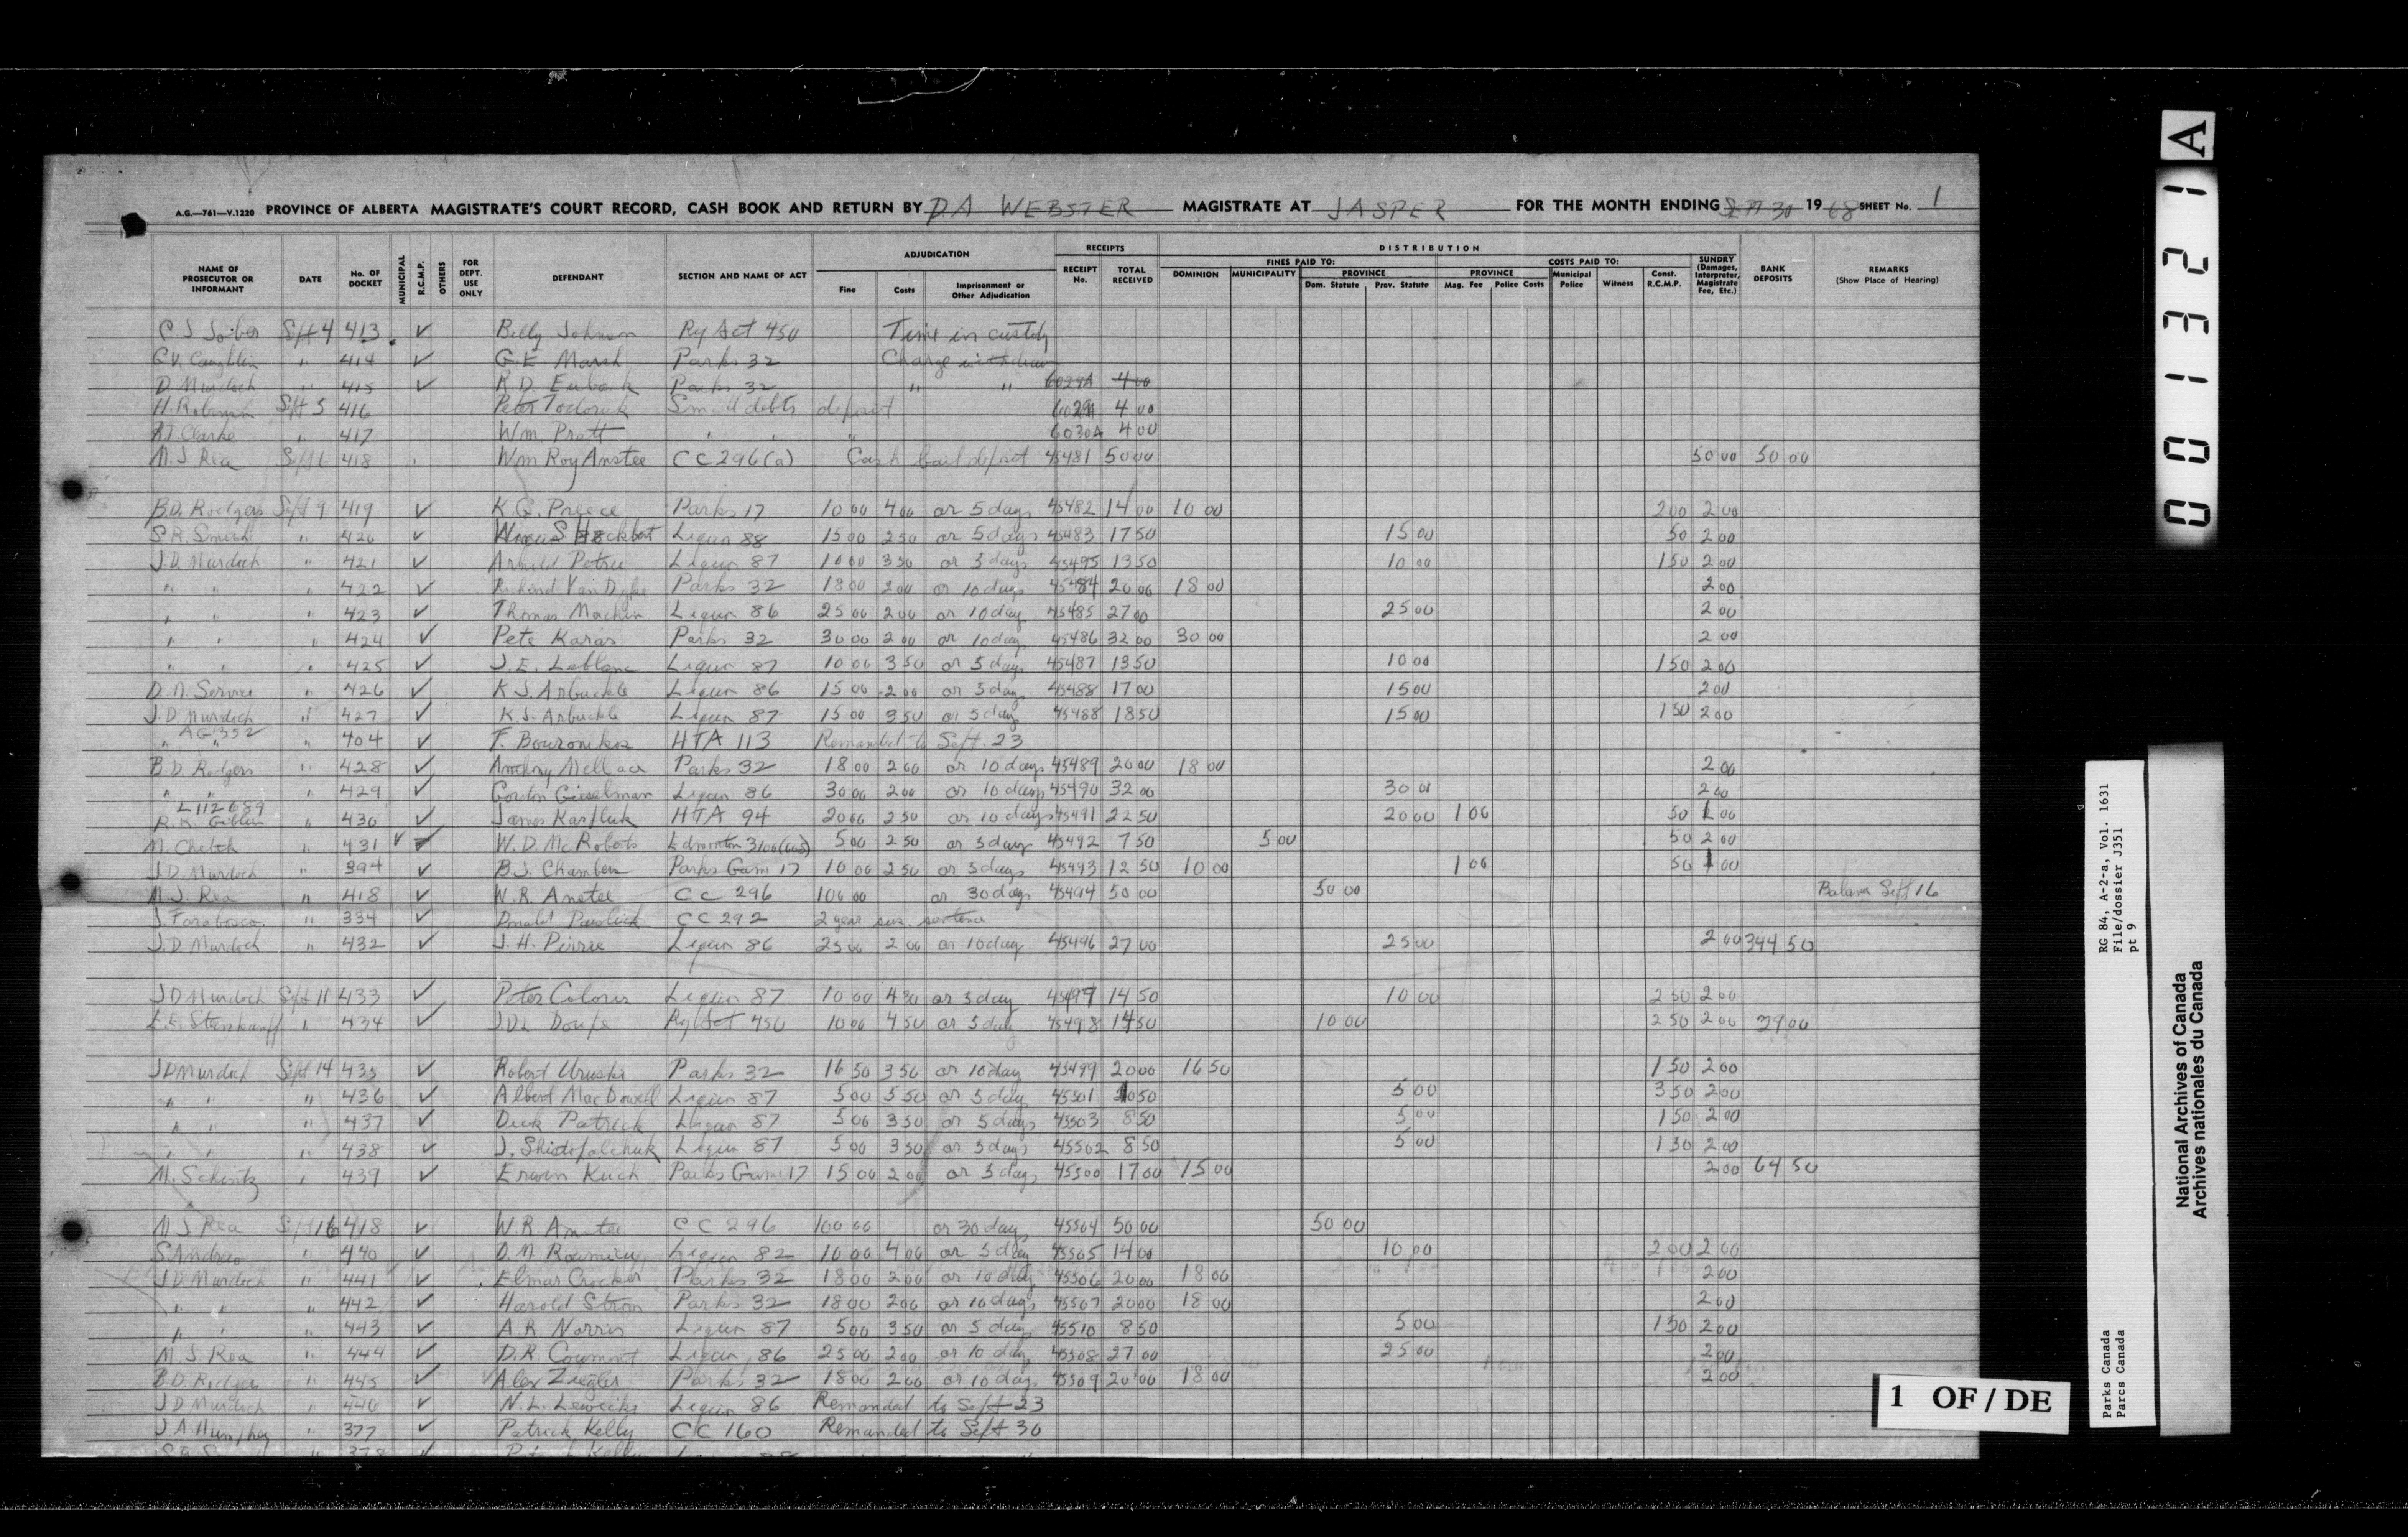 A.G.—761—V.1220 PROVINCE OF ALBERTA MAGISTRATE'S COURT RECORD, CASH BOOK AND RETURN BY D A WEBSTER MAGISTRATE AT JASPER FOR THE MONTH ENDING SEPT 30 1968 SHEET No. 1
ADJUDICATION RECEIPTS DISTRIBUTION
FINES PAID TO: COSTS PAID TO:
NAME OF PROSECUTOR OR INFORMANT DATE No. OF DOCKET MUNICIPAL R.C.M.P. OTHERS FOR DEPT. USE ONLY DEFENDANT SECTION AND NAME OF ACT Fine Costs Imprisonment or Other Adjudication RECEIPT No. TOTAL RECEIVED DOMINION MUNICIPALITY PROVINCE Dom. Statute Prov. Statute PROVINCE Mag. Fee Police Costs Municipal Police Witness Const. R.C.M.P. SUNDRY (Damages, Interpreter, Magistrate Fee, Etc.) BANK DEPOSITS REMARKS (Show Place of Hearing)
Sept 4 413 ✓ Billy Johnson Ry Act 450 Time in custody
" 414 ✓ G E Marsh Parks 32 Charge withdrawn
D Murdoch " 415 ✓ R D. Eubank Parks 32 " " 6029A 4 00
Sept 5 416 Peter Todoruk Small debts deposit 6029A 4 00
Clarke " 417 Wm. Pratt " " " 6030A 4 00
M. J. Rea Sept 6 418 Wm Roy Anstee CC 296(a) Cash bail deposit 45481 50 00 50 00 50 00
B.D. Rodgers Sept 9 419 ✓ K.G. Preece Parks 17 10 00 4 00 or 5 days 45482 14 00 10 00 2 00 2 00
S R. Smith " 420 ✓ Liquor 88 15 00 2 50 or 5 days 45483 17 50 15 00 50 2 00
J.D. Murdoch " 421 ✓ Arnold Petrie Liquor 87 10 00 3 50 or 5 days 45495 13 50 10 00 1 50 2 00
" " 422 ✓ Richard Van Dyke Parks 32 18 00 2 00 or 10 days 45484 20 00 18 00 2 00
" " " 423 ✓ Thomas Machin Liquor 86 25 00 2 00 or 10 day 45485 27 00 25 00 2 00
" " " 424 ✓ Pete Karas Parks 32 30 00 2 00 or 10 day 45486 32 00 30 00 2 00
" " " 425 ✓ J.E. Leblanc Liquor 87 10 00 3 50 or 5 days 45487 13 50 10 00 1 50 2 00
D.N. Service " 426 ✓ K J. Arbuckle Liquor 86 15 00 2 00 or 5 day 45488 17 00 15 00 2 00
J.D. Murdoch " 427 ✓ K J. Arbuckle Liquor 87 15 00 3 50 or 5 day 45488 18 50 15 00 1 50 2 00
AG 352
" " " 404 ✓ T. HTA 113 Remanded to Sept. 23
B.D. Rodgers " 428 ✓ Anthony Parks 32 18 00 2 00 or 10 days 45489 20 00 18 00 2 00
" " " 429 ✓ Gordon Gieselman Liquor 86 30 00 2 00 or 10 days 45490 32 00 30 00 2 00
L112689
R.K. Giblin " 430 ✓ James Karpluk HTA 94 20 00 2 50 or 10 days 45491 22 50 20 00 1 00 50 1 00
M. " 431 ✓ W.D. McRoberts Edmonton 5 00 2 50 or 5 days 45492 7 50 5 00 50 2 00
J.D. Murdoch " 394 ✓ B.J. Chambers Parks Game 17 10 00 2 50 or 5 days 45493 12 50 10 00 1 00 50 1 00
M.J. Rea " 418 ✓ W.R. Anstee CC 296 100 00 or 30 days 45494 50 00 50 00 Balance Sept 16
J. Forabosco " 334 ✓ Donald CC 292 2 year sus. sentence
J.D. Murdoch " 432 ✓ J.H. Pirrie Liquor 86 25 00 2 00 or 10 day 45496 27 00 25 00 2 00 344 50
J D Murdoch Sept 11 433 ✓ Peter Liquor 87 10 00 4 50 or 5 day 45497 14 50 10 00 2 50 2 00
" 434 ✓ J.D.L. Doupe Ry Act 450 10 00 4 50 or 5 day 45498 14 50 10 00 2 50 2 00 29 00
J D Murdoch Sept 14 435 ✓ Robert Uruski Parks 32 16 50 3 50 or 10 day 45499 20 00 16 50 1 50 2 00
" " " 436 ✓ Albert MacDowell Liquor 87 5 00 5 50 or 5 day 45501 10 50 5 00 3 50 2 00
" " " 437 ✓ Dick Patrick Liquor 87 5 00 3 50 or 5 days 45503 8 50 5 00 1 50 2 00
" " " 438 ✓ J. Liquor 87 5 00 3 50 or 5 days 45502 8 50 5 00 1 50 2 00
M. Schintz " 439 ✓ Erwin Kuch Parks Game 17 15 00 2 00 or 5 days 45500 17 00 15 00 2 00 64 50
M J Rea Sept 16 418 ✓ W.R. Anstee CC 296 100 00 or 30 day 45504 50 00 50 00
S Andrew " 440 ✓ D.N. Liquor 82 10 00 4 00 or 5 day 45505 14 00 10 00 2 00 2 00
J D Murdoch " 441 ✓ Elmar Crocker Parks 32 18 00 2 00 or 10 day 45506 20 00 18 00 2 00
" " " 442 ✓ Harold Strom Parks 32 18 00 2 00 or 10 days 45507 20 00 18 00 2 00
" " " 443 ✓ A R Norris Liquor 87 5 00 3 50 or 5 day 45510 8 50 5 00 1 50 2 00
M. J Rea " 444 ✓ D.R. Liquor 86 25 00 2 00 or 10 day 45508 27 00 25 00 2 00
B D. Rodgers " 445 ✓ Alex Ziegler Parks 32 18 00 2 00 or 10 day 45509 20 00 18 00 2 00
J D Murdoch " 446 ✓ N.L. Lewicki Liquor 86 Remanded to Sept 23
J.A. Humphrey " 377 ✓ Patrick Kelly CC 160 Remanded to Sept 30
378 ✓ Kelly
1 OF / DE
001321 A
RG 84, A-2-a, Vol. 1631
File/dossier J351
pt 9
Parks Canada
Parcs Canada
National Archives of Canada
Archives nationales du Canada